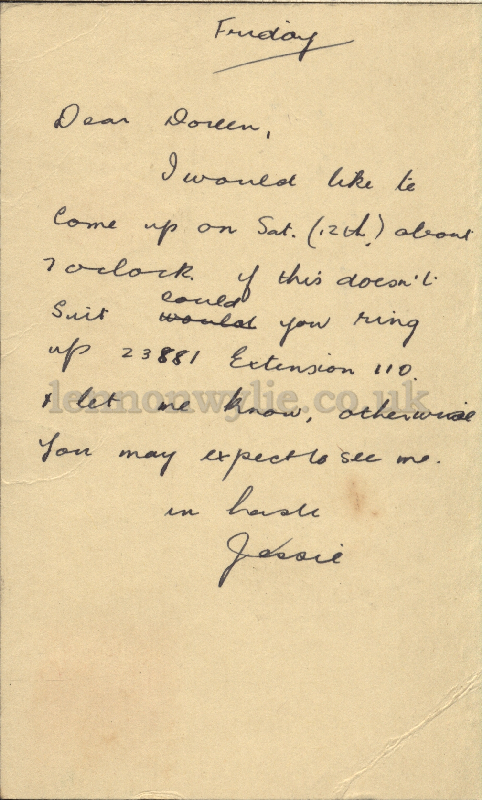 Friday
Dear Doreen,
I would like to
come up on Sat. (12th) about
7 oclock. if this doesn't
could
suit would you ring
up 23881 Extension 110
& let me know, otherwise
you may expect to see me.
in haste
Jessie
lennonwylie.co.uk